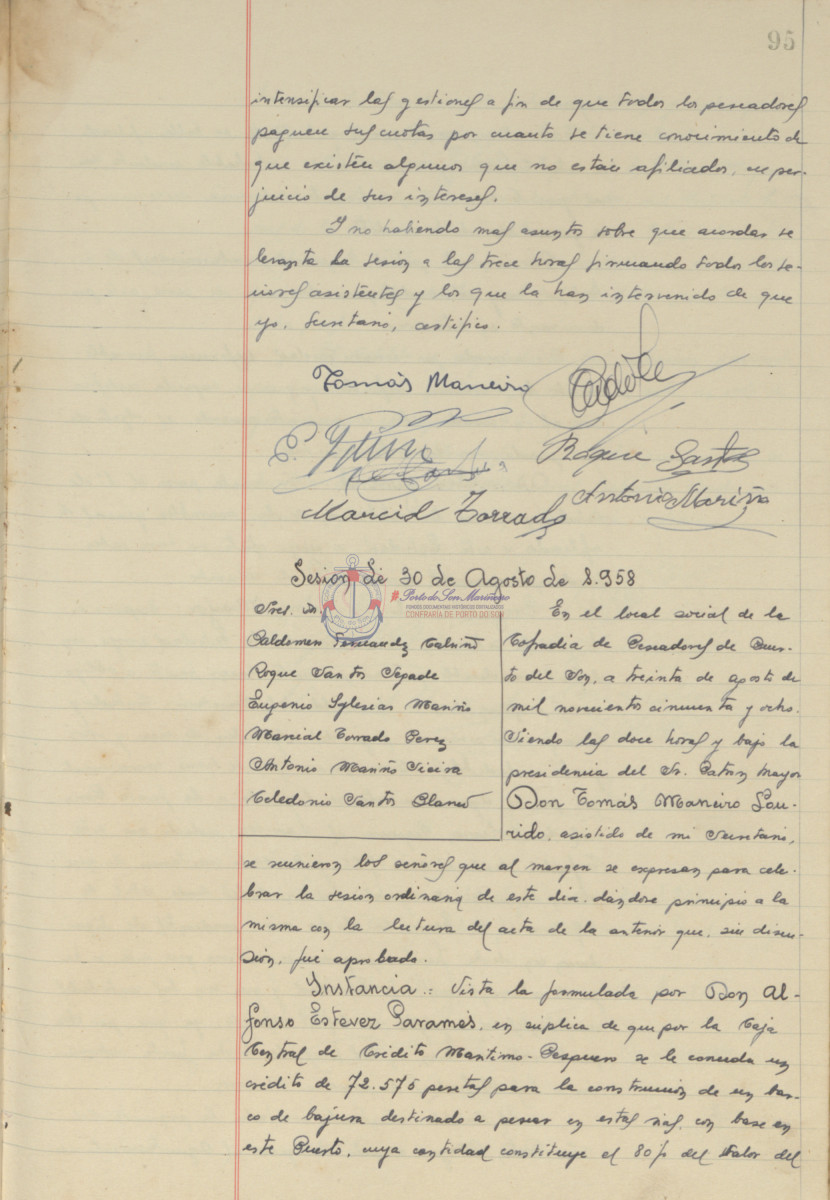 95
intensificar las gestiones a fin de que todos los pescadores
paguen sus cuotas por cuanto se tiene conocimiento de
que existen algunos que no estan afiliados, en per-
juicio de sus intereses.
Y no habiendo mas asuntos sobre que acordar se
levanta la sesion a las trece horas firmando todos los se-
ñores asistentes y los que la han intervenido de que
yo, Secretario, certifico.
Tomás Maneiro
Roque Santos
Antonio Mariño
Marcial Torrado
Sesion de 30 de Agosto de 1.958
Porto do Son Mariñeiro
FONDOS DOCUMENTAIS HISTÓRICOS DIXITALIZADOS
CONFRARÍA DE PORTO DO SON
Sres.
Caldomen Fernandez
Roque Santos Sepade
Eugenio Iglesias Mariño
Marcial Torrado Perez
Antonio Mariño Vieira
Celedonio Santos Blanco
En el local social de la
Cofradia de Pescadores de Puer-
to del Son, a treinta de agosto de
mil novecientos cincuenta y ocho.
Siendo las doce horas y bajo la
presidencia del Sr. Patron Mayor
Don Tomás Maneiro Lou-
rido, asistido de mi Secretario,
se reunieron los señores que al margen se expresan para cele-
brar la sesion ordinaria de este dia, dandose principio a la
misma con la lectura del acta de la anterior que, sin discu-
sión, fué aprobada.
Instancia.: Vista la formulada por Don Al-
fonso Estevez Paramés, en súplica de que por la Caja
Central de Crédito Maritimo-Pesquero se le conceda un
crédito de 72.575 pesetas para la construccion de un bar-
co de bajura destinado a pescar en estas rias, con base en
este Puerto, cuya cantidad constituye el 80% del valor del